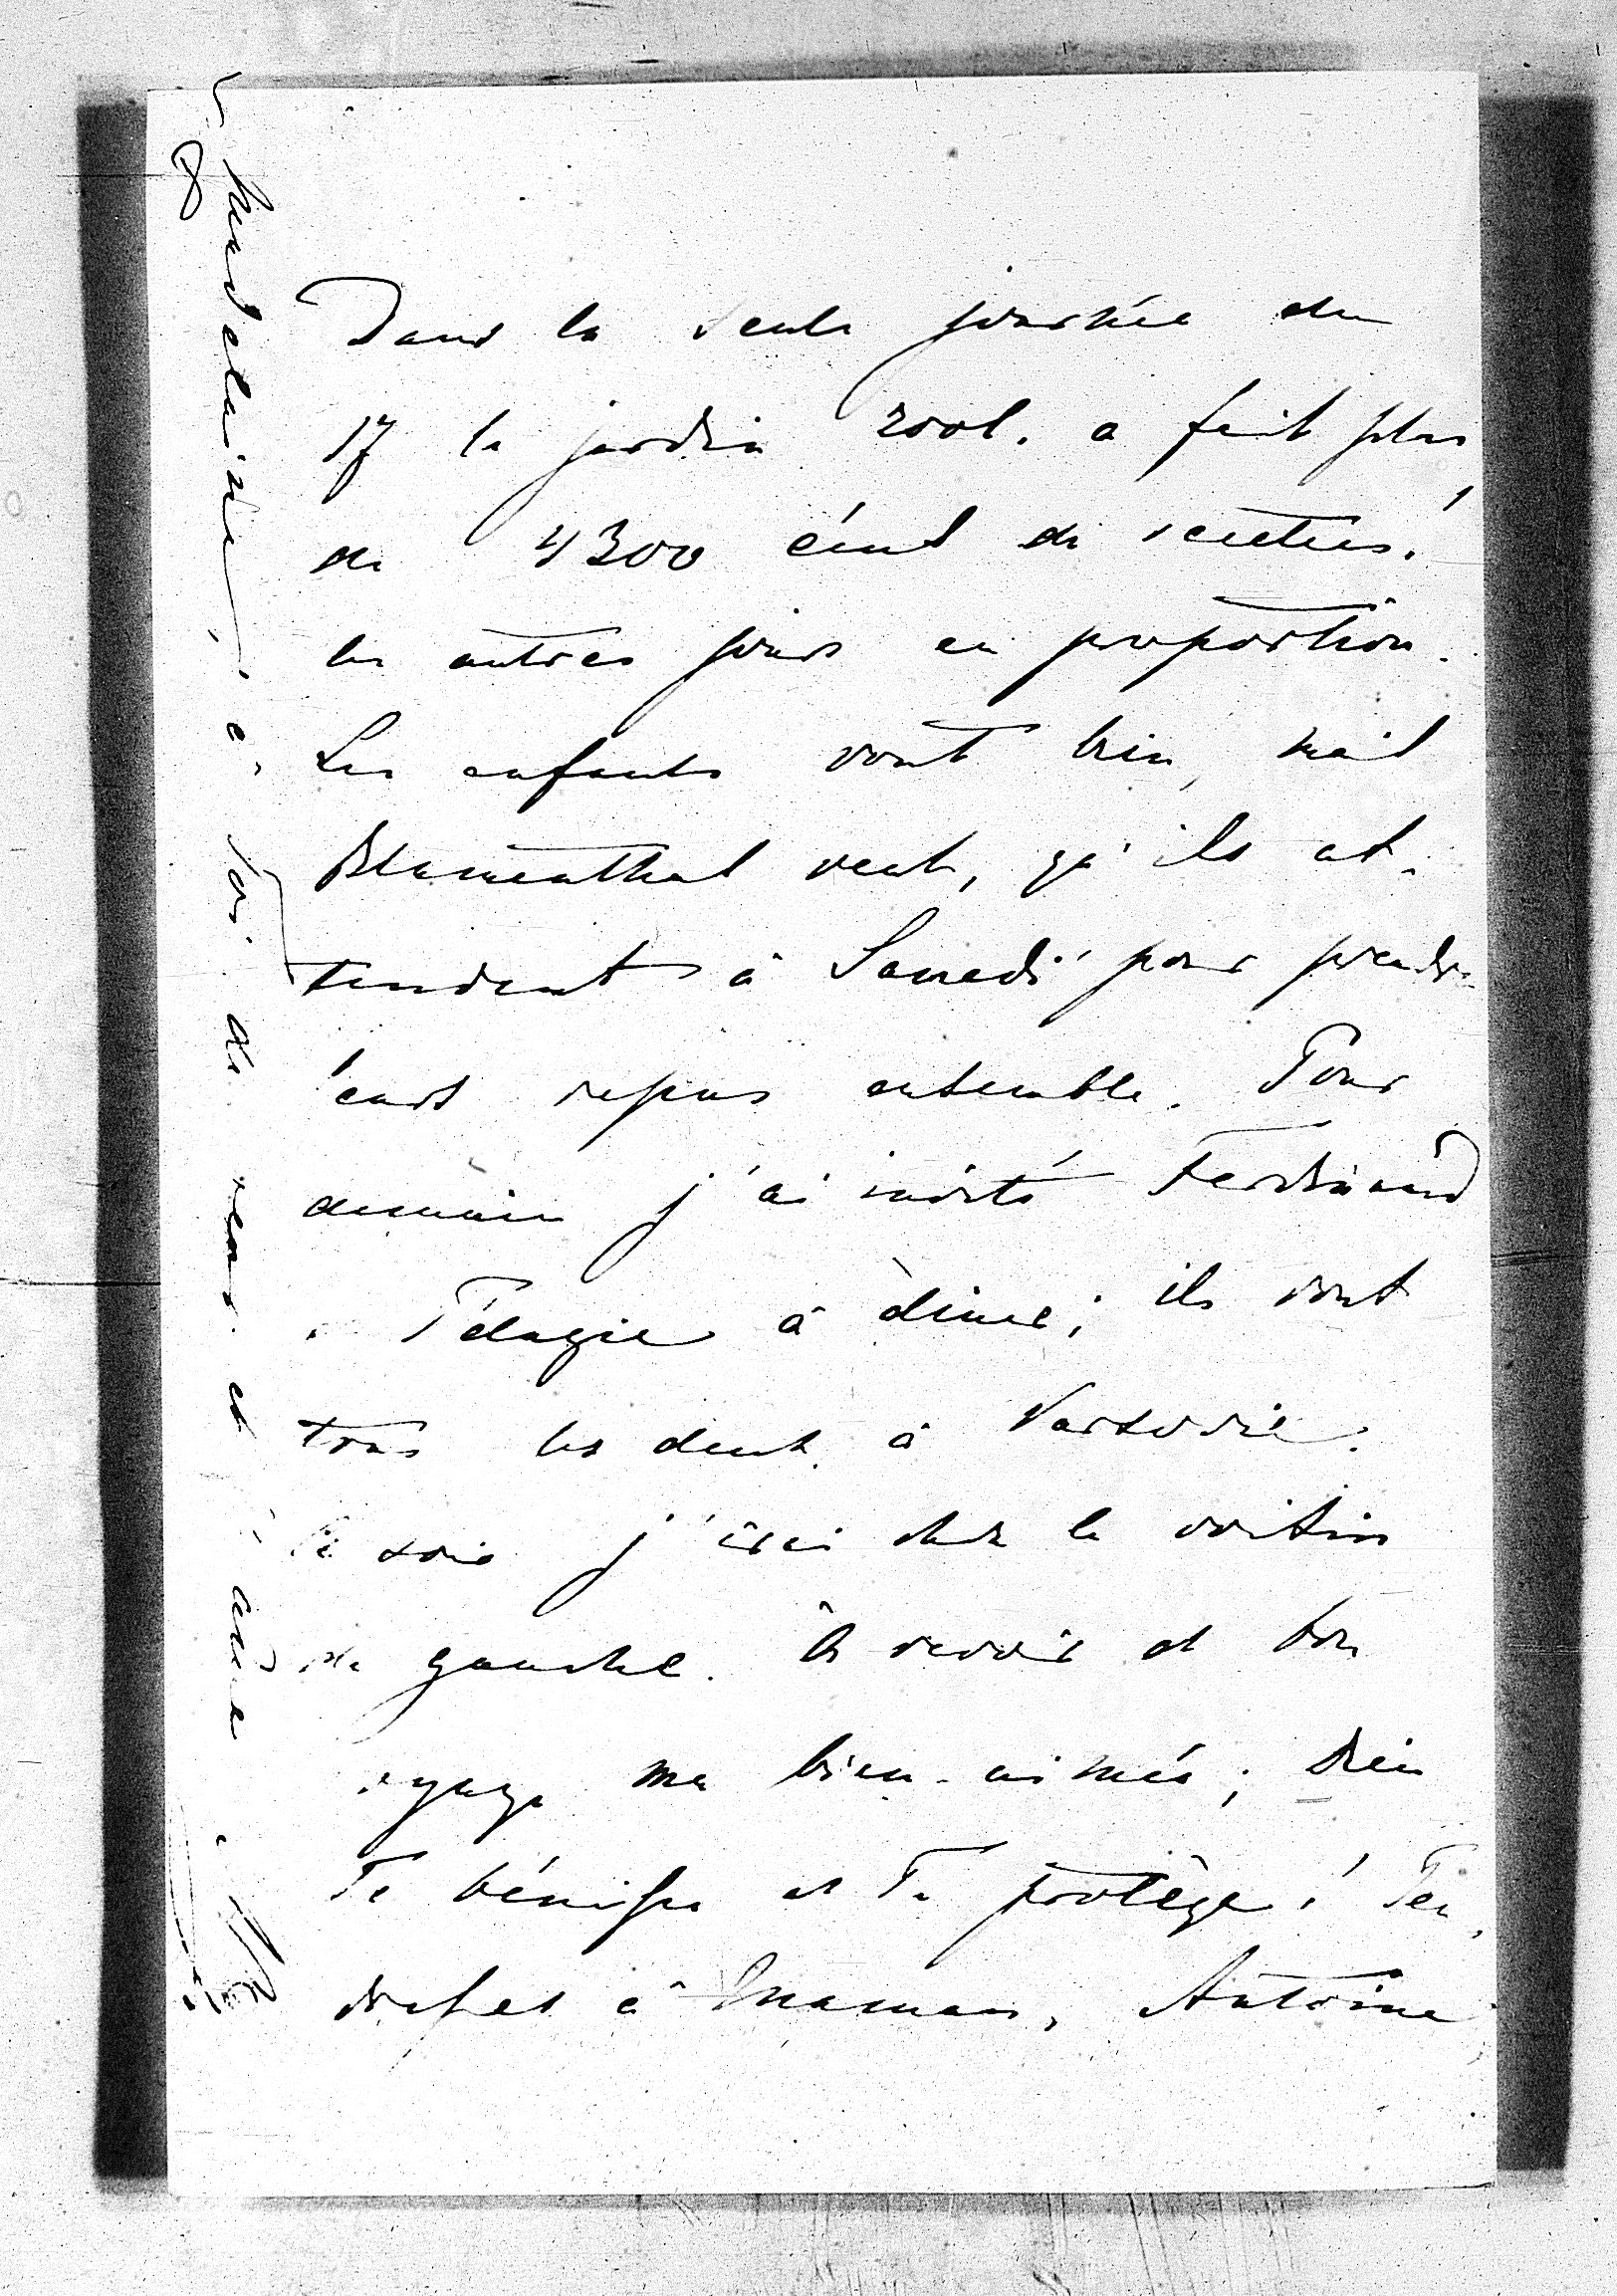 Dans la seule journée du
17 le jardin zool. a fait plus
de 4300 écus de recettes!
les autres jours en proportion.
Les enfants vont bien, mais
Blumenthal veut, qu'ils at-
tendent à Samedi pour prendre
leurs repas ensemble. Pour
demain j'ai invité Ferdinand
Pélagie à dîner; ils vont
tous les deux à Varsovie.
Ce soir j'irai chez le voisin
de gauche. Au revoir et bon
voyage ma bien-aimée; Dieu
Te bénisse et Te protège! Ten-
dresses à Maman, Antoine
Madelaine, à toi de et